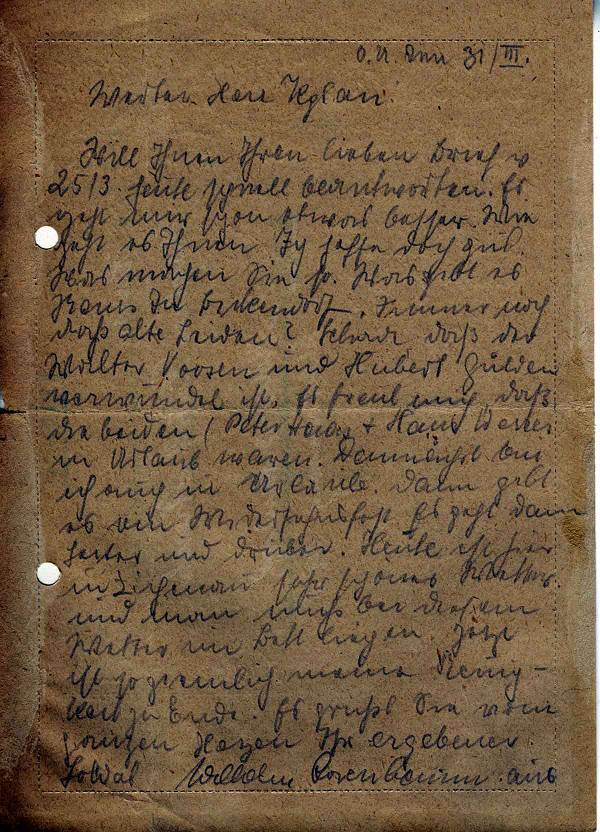 O.U. den 31/III.
Werter Herr Kplan!
Will Ihnen Ihren lieben Brief v
25/3. heute schnell beantworten. Es
geht mir schon etwas besser. Wie
geht es Ihnen Ich hoffe doch gut.
Was machen Sie so. Was gibt es
Neues In Birkendorf. Immer noch
daß alte Leiden? Schade daß der
Walter Voosen und Hubert Gülden
verwundet ist. Es freut mich daß
die beiden (Peter + Hans
in Urlaub waren. Demnächst bin
ich auch in Urlaub. Dann gebt
es ein Wiedersehnsfest Es geht dann
und drüber. Heute ist hier
in Lichenau sehr schönes Wetter.
und man muß bei diesem
Wetter im Bett liegen. Jetzt
ist so ziemlich meine Neuig-
keit zu Ende. Es grüßt Sie vom
ganzen Herzen Ihr ergebener
Soldat Wilhelm Rosenbaum. aus